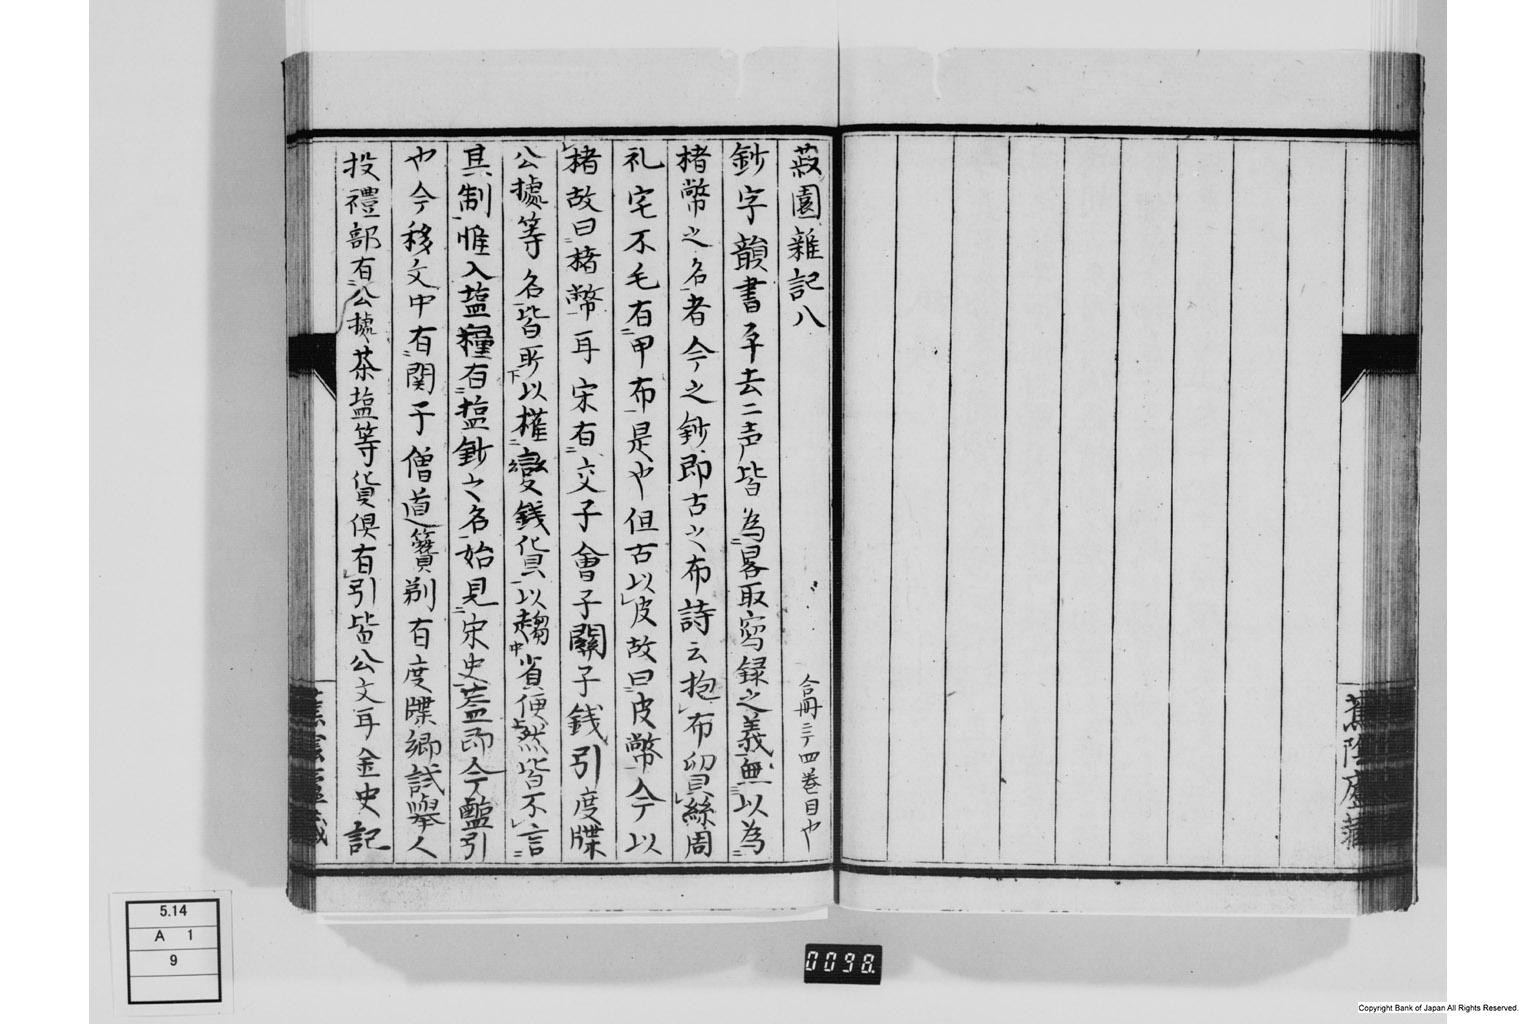 菽園雜記八
合冊三丁四巻目也
鈔字韻書平去二声皆為畧取寫録之義無以為
楮幣之名者今之鈔即古之布詩云抱布貿絲周
礼宅不毛有里布是也但古以皮故曰皮幣今以
楮故曰楮幣耳宋有交子會子關子錢引度牒
公據等名皆所以權變錢貨以趨省便然皆不言
其制惟入塩糧有塩鈔之名始見宋史蓋即今鹽引
也今移文中有関子僧道簪剃有度牒鄉試舉人
投禮部有公據茶塩等貨俱有引皆公文耳金史記
蕉陰廬蔵
5.14
A 1
9
0098.
Copyright Bank of Japan All Rights Reserved.